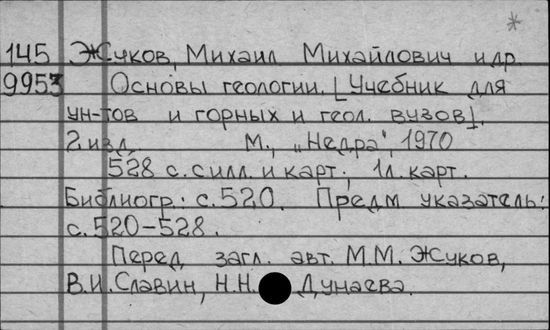 *
145 Жуков, Михаил Михайлович и др.
9953 Основы геологии. [Учебник для
ун-тов и горных и геол. вузов].
2 изд. М., „Недра“, 1970
528 с. с илл. и карт.; 1 л. карт.
Библиогр.: с. 520. Предм указатель:
с. 520-528.
Перед загл. авт. М.М. Жуков,
В.И. Славин, Н.Н. Дунаева.